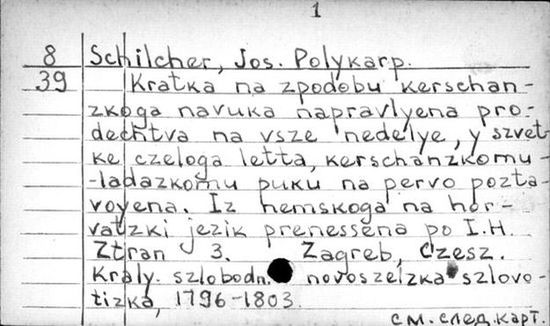 1
8 Schilcher, Jos. Polykarp.
39 Kratka na zpodobu kerschan-
zkoga navuka napravlyena pro-
dechtva na vsze nedelye, y szvet-
ke czeloga letta, kerschanzkomu-
-ladazkomu puku na pervo pozta-
voyena. Iz nemskoga na hor-
vatzki jezik prenessena po I.H.
Ztran 3. Zagreb, Czesz.
Kraly. szlobodn. novoszelzka szlovo-
tizka, 1796-1803.
см. след. карт.